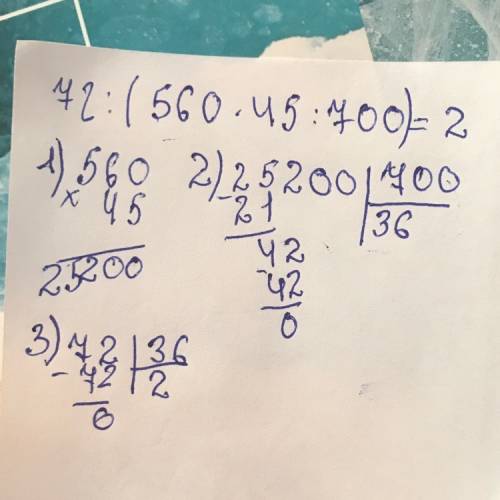 72:(560·45:700)=2
1) 560
x 45
25200
2) 25200 | 700
- 21 | 36
42
- 42
0
3) 72 | 36
- 72 | 2
0